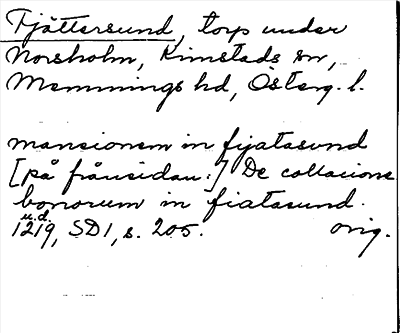 Fjättersund, torp under
Norsholm, Kimstads sn,
Memmings hd, Österg. l.
mansionem in fijatasund
[på frånsidan:] De collacione
bonorum in fiatasund.
u.d.
1219, SD 1, s. 205. orig.